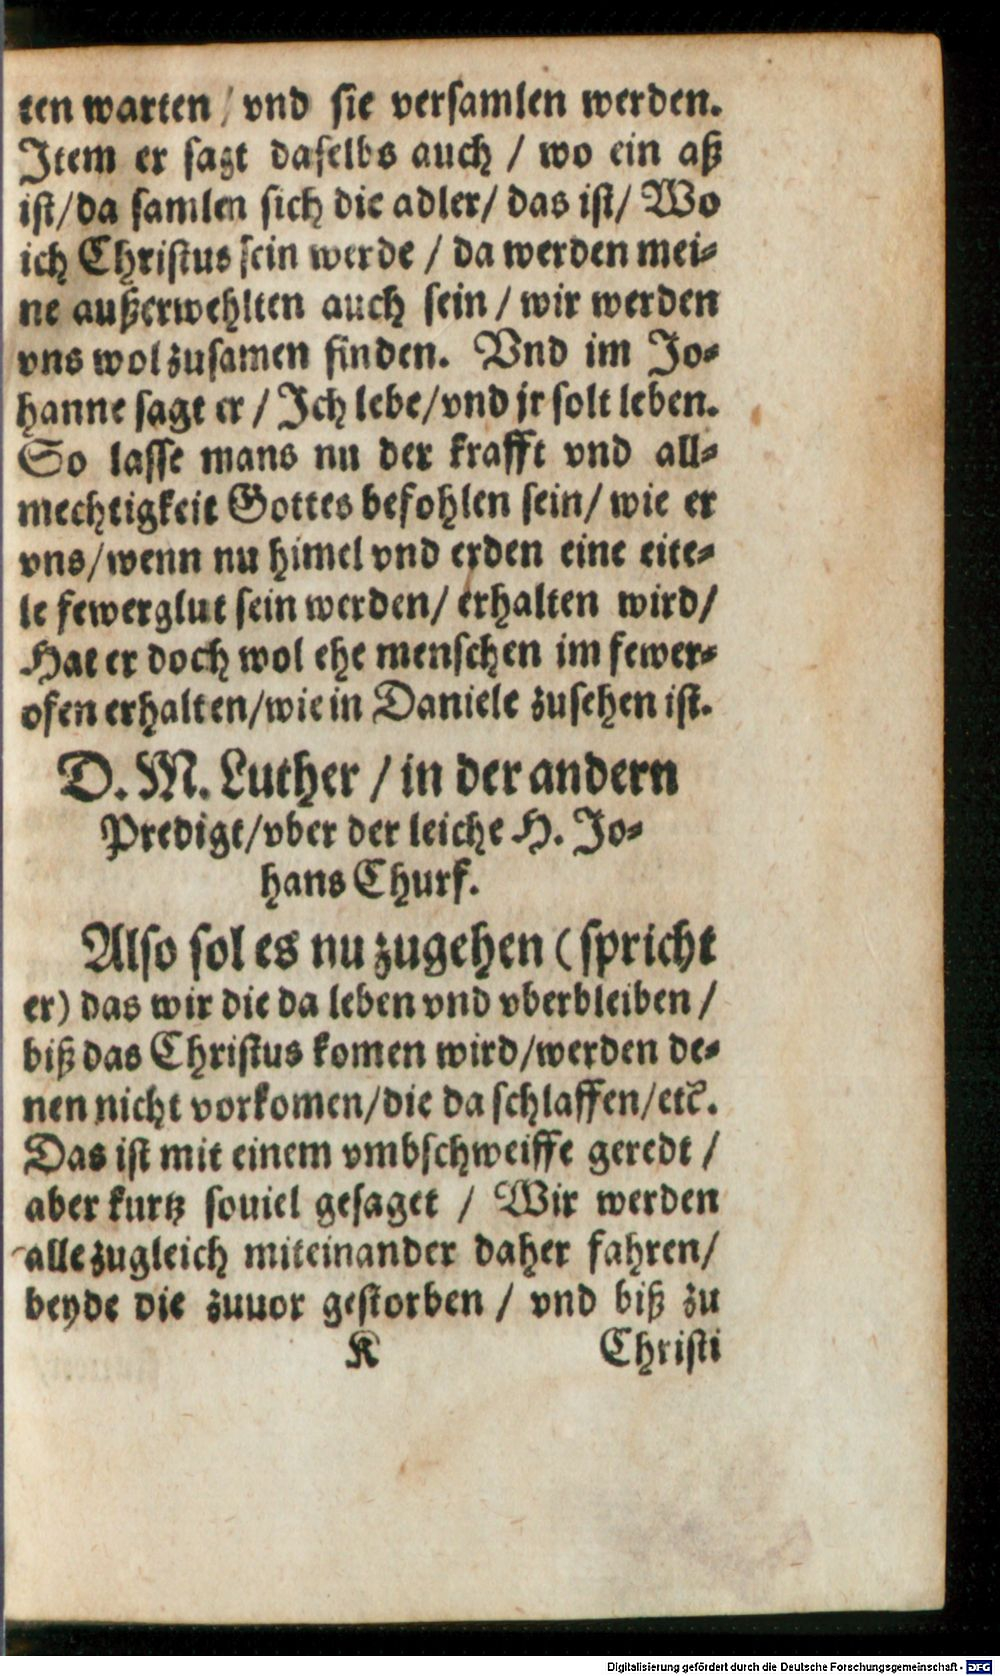 ten warten / vnd sie versamlen werden.
Item er sagt daselbs auch / wo ein aß
ist/da samlen sich die adler/ das ist/ Wo
ich Christus sein werde / da werden mei-
ne außerwehlten auch sein / wir werden
vns wol zusamen finden. Vnd im Jo-
hanne sagt er / Ich lebe/vnd jr solt leben.
So lasse mans nu der krafft vnd all-
mechtigkeit Gottes befohlen sein/ wie er
vns/wenn nu himel vnd erden eine eite-
le fewerglut sein werden/ erhalten wird/
Hat er doch wol ehe menschen im fewer-
ofen erhalten/wie in Daniele zusehen ist.
D. M. Luther / in der andern
Predigt/vber der leiche H. Jo-
hans Churf.
Also sol es nu zugehen (spricht
er) das wir die da leben vnd vberbleiben /
biß das Christus komen wird/werden de-
nen nicht vorkomen/die da schlaffen/etc.
Das ist mit einem vmbschweiffe geredt /
aber kurtz souiel gesaget / Wir werden
alle zugleich miteinander daher fahren/
beyde die zuuor gestorben / vnd biß zu
K Christi
Digitalisierung gefördert durch die Deutsche Forschungsgemeinschaft - DFG